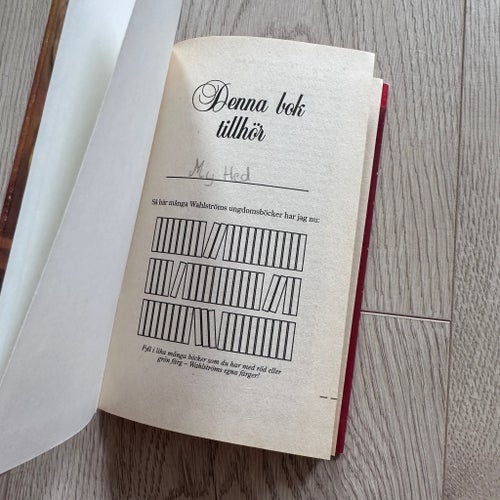 Denna bok
tillhör
My Hed
Så här många Wahlströms ungdomsböcker har jag nu:
Fyll i lika många böcker som du har med röd eller
grön färg – Wahlströms egna färger!